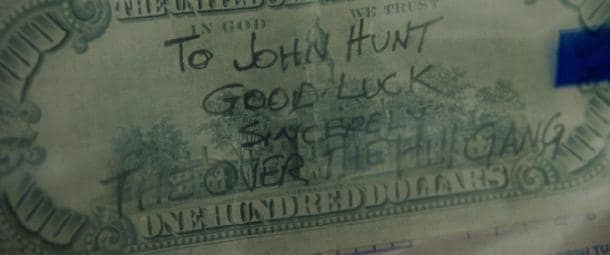 THE UNITED
IN GOD WE TRUST
TO JOHN HUNT
GOOD LUCK
SINCERELY
THE OVER THE HILL GANG
ONE HUNDRED DOLLARS